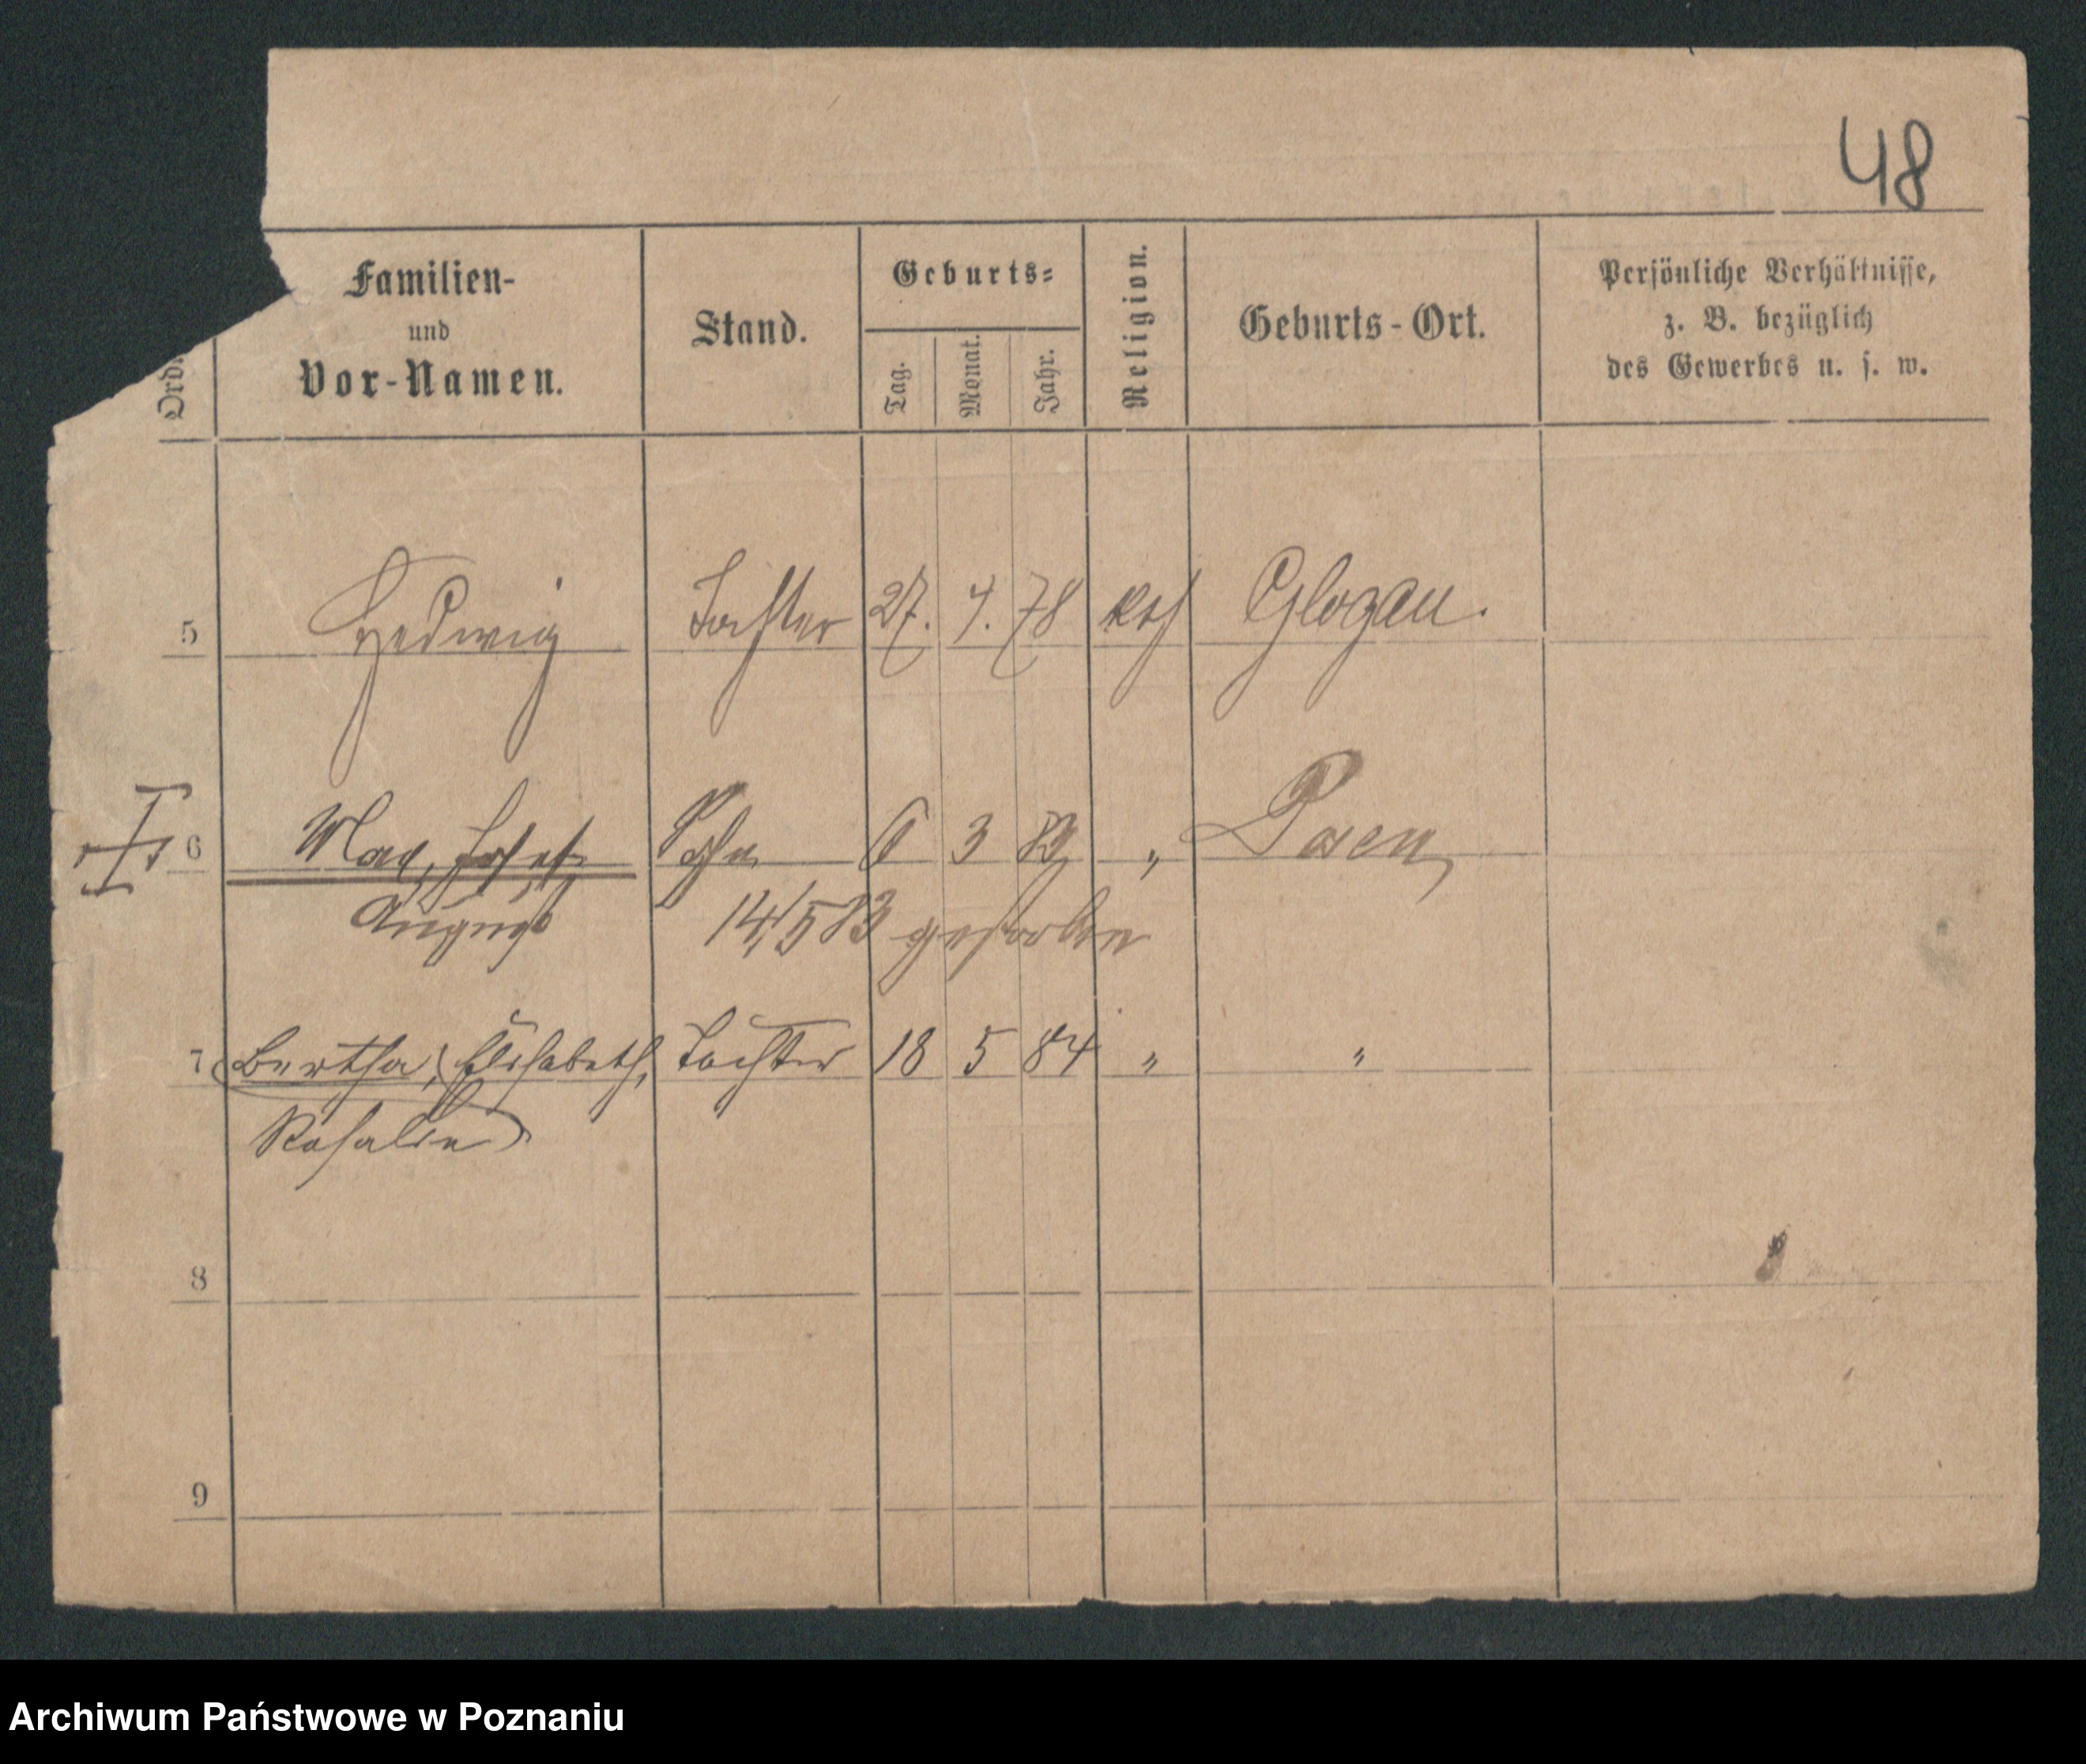 48
Ord.
Familien-
und
Vor-Namen.
Stand.
Geburts-
Tag.
Monat.
Jahr.
Religion.
Geburts-Ort.
Persönliche Verhältnisse,
z. B. bezüglich
des Gewerbes u. s. w.
5 Hedwig Tochter 27. 4. 78 kth Glogau.
6 Max, Josef Sohn 6 3 83 " Posen
August 14/5 83 gestorben
7 Bertha, Elisabeth, Tochter 18 5 84 " "
Rosalie
8
9
Archiwum Państwowe w Poznaniu